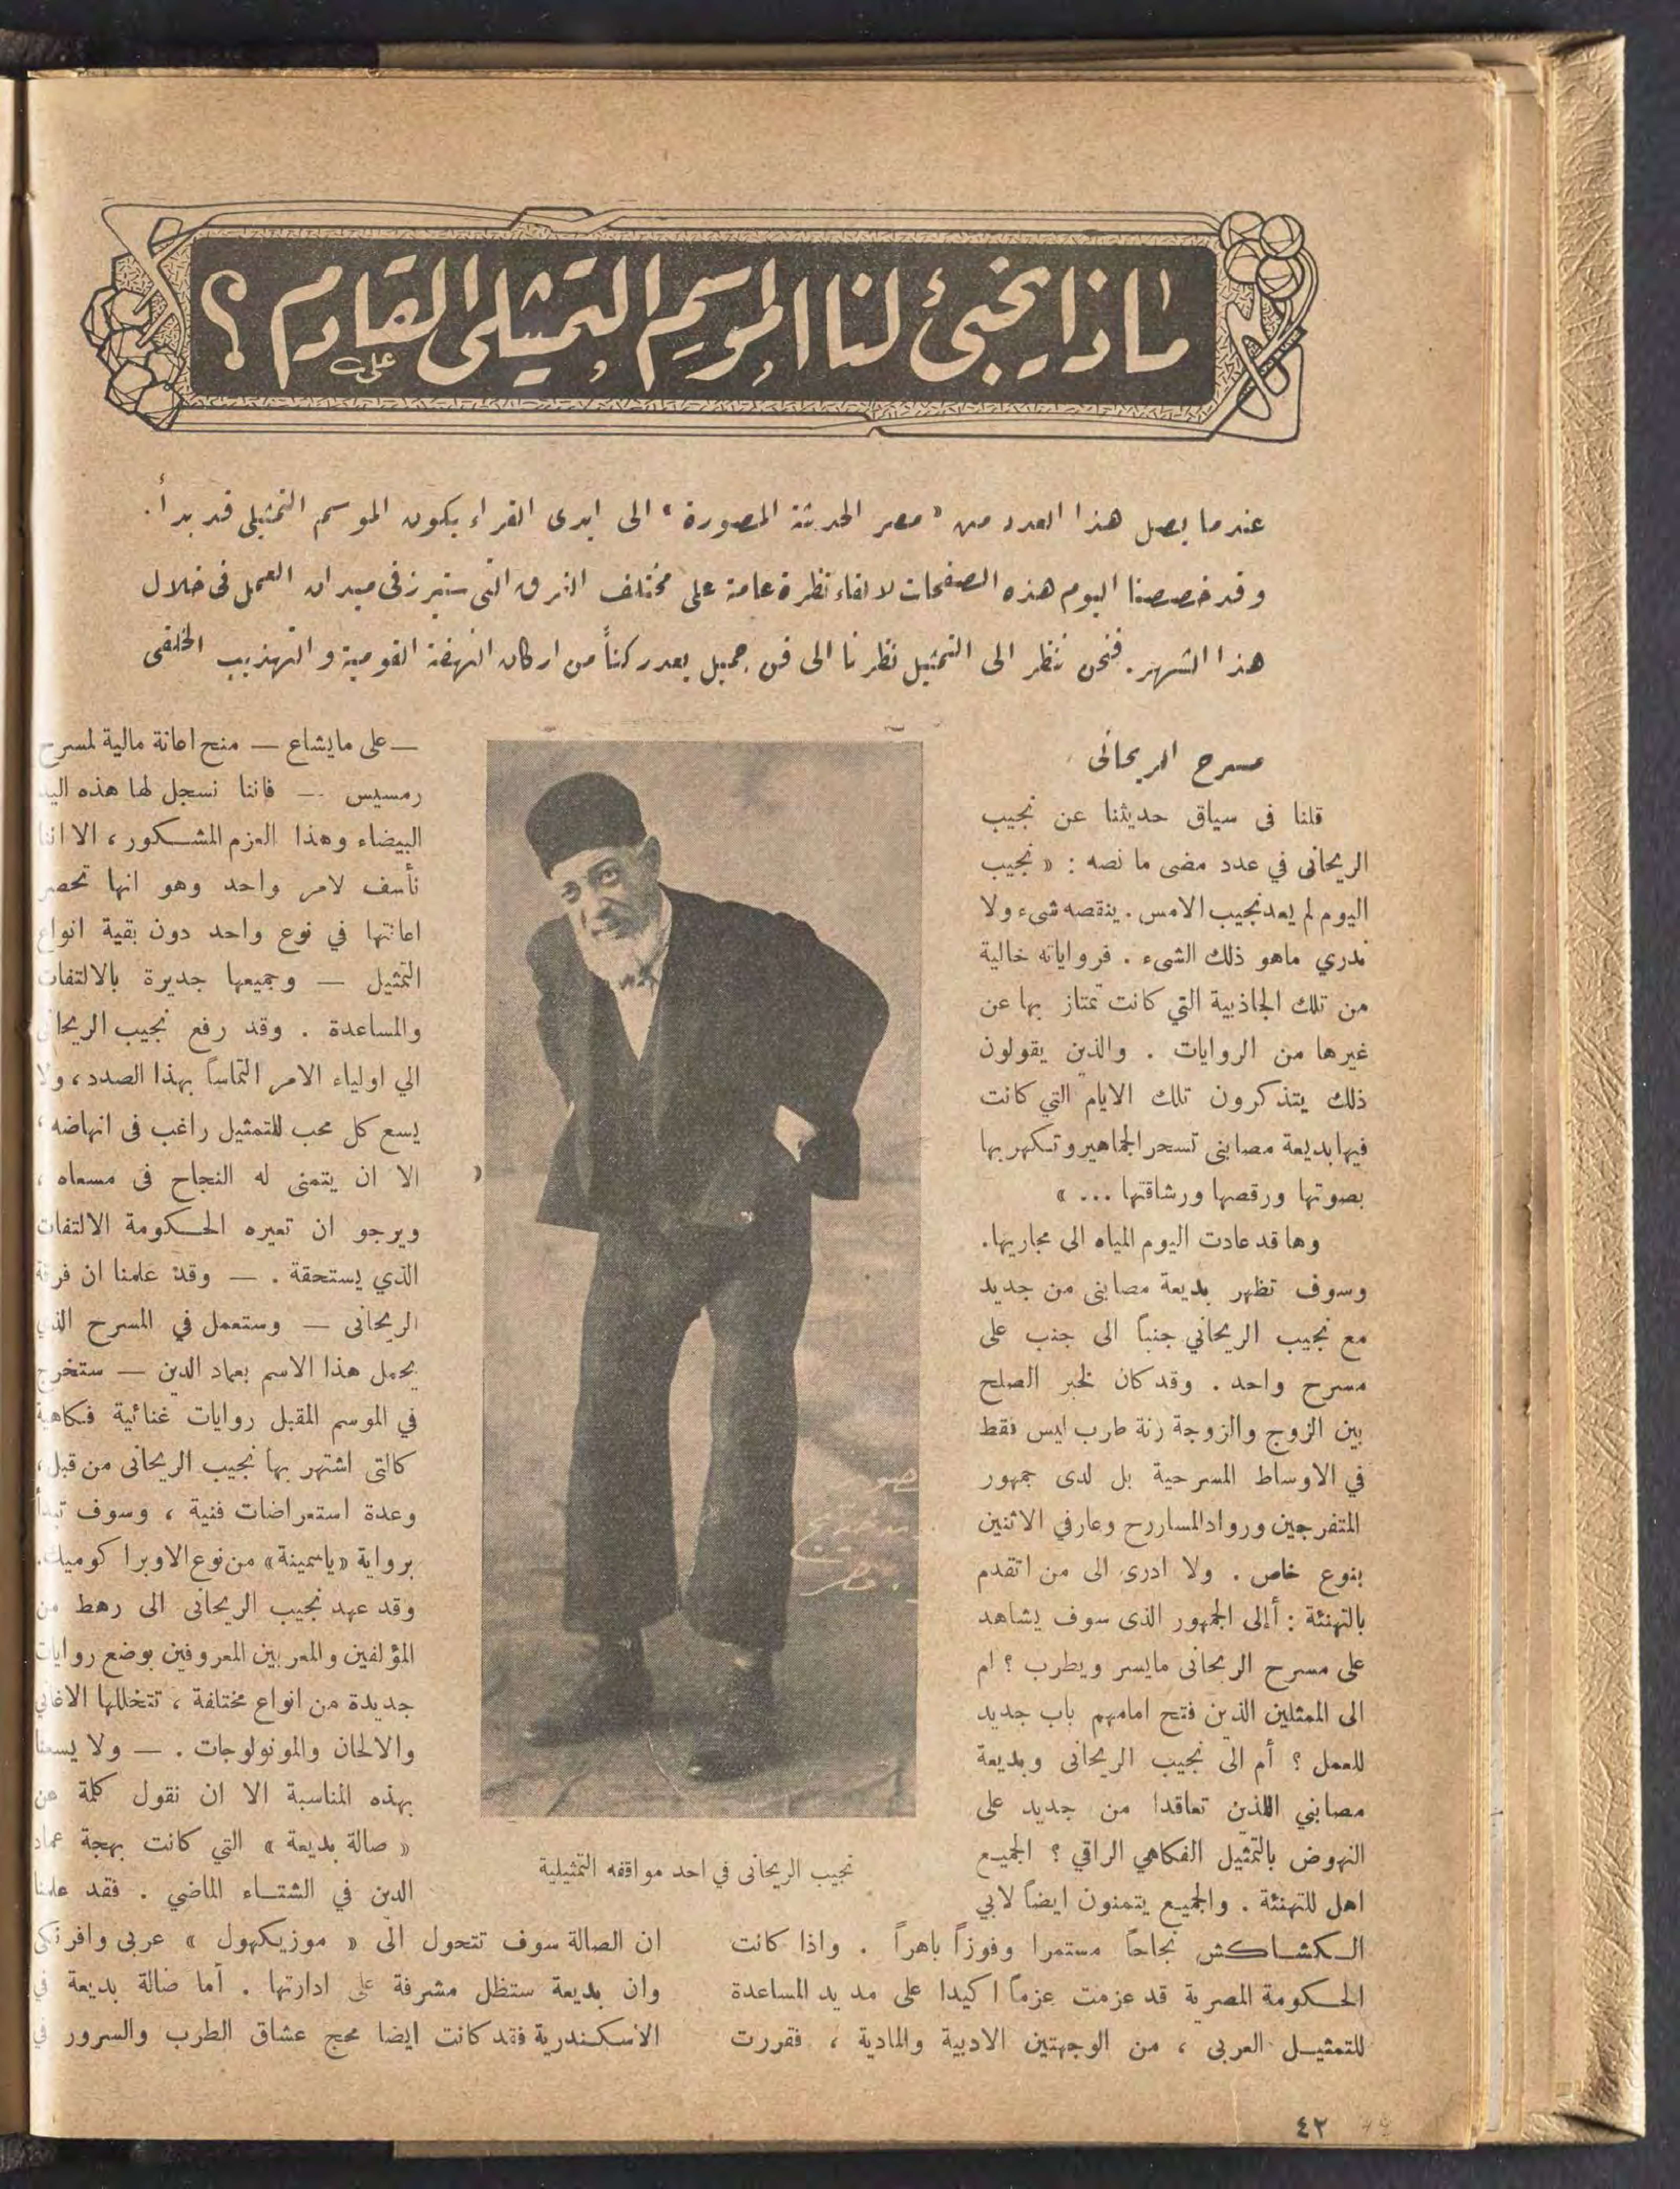 ماذا يخبئ لنا الموسم التمثيلي القادم ؟
علي
عندما يصل هذا العدد من « مصر الحديثة المصورة » الى ايدى القراء يكون الموسم التمثيلى قد بدأ .
وقد خصصنا اليوم هذه الصفحات لالقاء نظرة عامة على مختلف الفرق التى ستبرز فى ميدان العمل فى خلال
هذا الشهر . فنحن ننظر الى التمثيل نظرنا الى فن جميل يعد ركناً من اركان النهضة القومية والتهذيب الخلقى
مسرح الريحانى
قلنا فى سياق حديثنا عن نجيب
الريحانى في عدد مضى ما نصه : « نجيب
اليوم لم يعد نجيب الامس . ينقصه شىء ولا
ندري ماهو ذلك الشىء . فرواياته خالية
من تلك الجاذبية التي كانت تمتاز بها عن
غيرها من الروايات . والذين يقولون
ذلك يتذكرون تلك الايام التي كانت
فيها بديعة مصابنى تسحر الجماهير وتسكهربها
بصوتها ورقصها ورشاقتها ... »
وها قد عادت اليوم المياه الى مجاريها .
وسوف تظهر بديعة مصابنى من جديد
مع نجيب الريحاني جنباً الى جنب على
مسرح واحد . وقد كان لخبر الصلح
بين الزوج والزوجة رنة طرب ليس فقط
في الاوساط المسرحية بل لدى جمهور
المتفرجين ورواد المساررح وعارفي الاثنين
بنوع خاص . ولا ادرى الى من اتقدم
بالتهنئة : أإلى الجمهور الذى سوف يشاهد
على مسرح الريحانى مايسر ويطرب ؟ ام
الى الممثلين الذين فتح امامهم باب جديد
للعمل ؟ أم الى نجيب الريحانى وبديعة
مصابني اللذن تعاقدا من جديد على
النهوض بالتمثيل الفكاهي الراقي ؟ الجميع
اهل للتهنئة . والجميع يتمنون ايضاً لابي
الكشاكش نجاحاً مستمرا وفوزاً باهراً . واذا كانت
الحكومة المصرية قد عزمت عزماً اكيدا على مد يد المساعدة
للتمثيل العربى ، من الوجهتين الادبية والمادية ، فقررت
نجيب الريحانى في احد مواقفه التمثيلية
— على مايشاع — منح اعانة مالية لمسرح
رمسيس — فاننا نسجل لها هذه اليد
البيضاء وهذا العزم المشكور ، الا اننا
نأسف لامر واحد وهو انها تحصر
اعانتها في نوع واحد دون بقية انواع
التمثيل — وجميعها جديرة بالالتفات
والمساعدة . وقد رفع نجيب الريحانى
الي اولياء الامر التماساً بهذا الصدد ، ولا
يسع كل محب للتمثيل راغب فى انهاضه ،
الا ان يتمنى له النجاح فى مسعاه ،
ويرجو ان تعيره الحكومة الالتفات
الذي يستحقة . — وقد علمنا ان فرقة
الريحانى — وستعمل في المسرح الذي
يحمل هذا الاسم بعماد الدين — ستخرج
في الموسم المقبل روايات غنائية فكاهية
كالتى اشتهر بها نجيب الريحانى من قبل ،
وعدة استعراضات فنية ، وسوف تبدأ
برواية « ياسمينة » من نوع الاوبرا كوميك .
وقد عهد نجيب الريحانى الى رهط من
المؤلفين والمعربين المعروفين بوضع روايات
جديدة من انواع مختلفة ، تتخللها الاغاني
والالحان والمونولوجات . — ولا يسعنا
بهذه المناسبة الا ان نقول كلمة عن
« صالة بديعة » التي كانت بهجة عماد
الدين في الشتاء الماضي . فقد علمنا
ان الصالة سوف تتحول الى « موزيكهول » عربى وافرنكى
وان بديعة ستظل مشرفة على ادارتها . أما صالة بديعة في
الاسكندرية فقد كانت ايضا محج عشاق الطرب والسرور في
٤٢